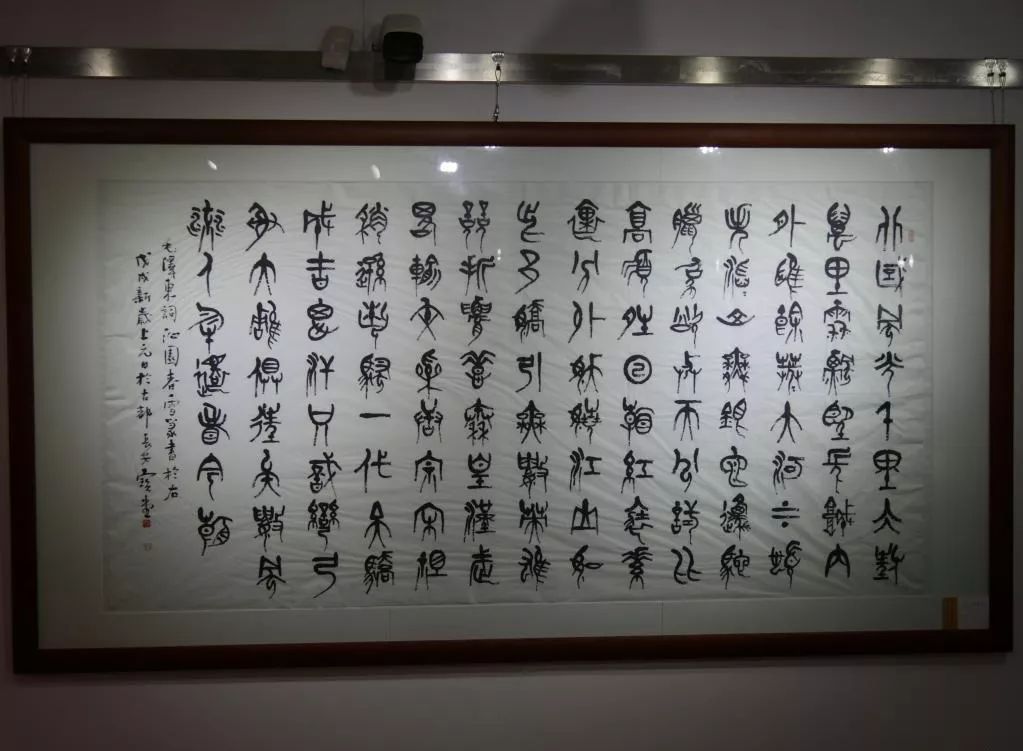 北國風光千里冰封
萬里雪飄望長城內
外惟餘莽莽大河上下頓
失滔滔山舞銀蛇原馳
蠟象欲與天公試比
高須晴日看紅裝素
裹分外妖嬈江山如
此多嬌引無數英雄
競折腰惜秦皇漢武
略輸文采唐宗宋祖
稍遜風騷一代天驕
成吉思汗只識彎弓
射大雕俱往矣數風
流人物還看今朝
毛澤東詞沁園春雪篆書於右
戊戌新歲上元日於古都長安